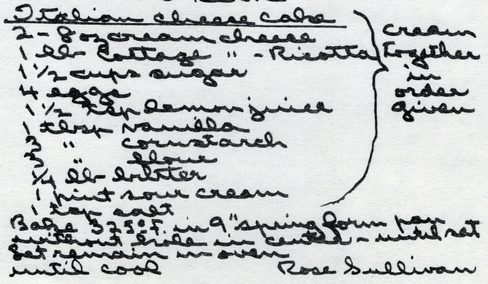 Italian cheese cake
2 - 8 oz cream cheese
1 lb Cottage " - Ricotta
1 1/2 cups sugar
4 eggs
1 1/2 tsp lemon juice
1 tbsp vanilla
3 " cornstarch
3 " flour
1/4 lb butter
1 pint sour cream
1 tsp salt
cream
together
in
order
given
Bake 325°F. in 9" spring form pan
without hole in center - until set
Let remain in oven
until cool Rose Sullivan